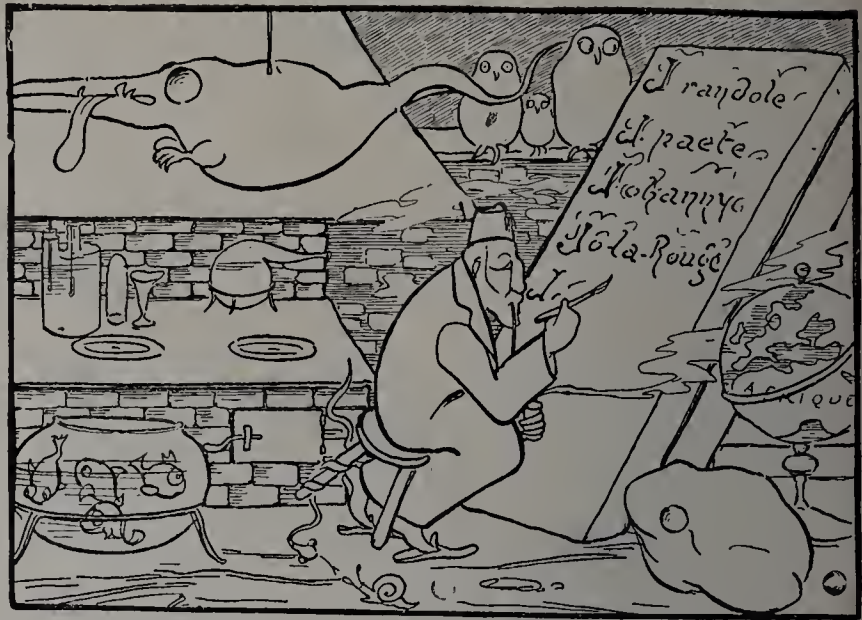 J randole
J. paete
Johannyo
Jo-la-Rouge
J
AFRIQUE